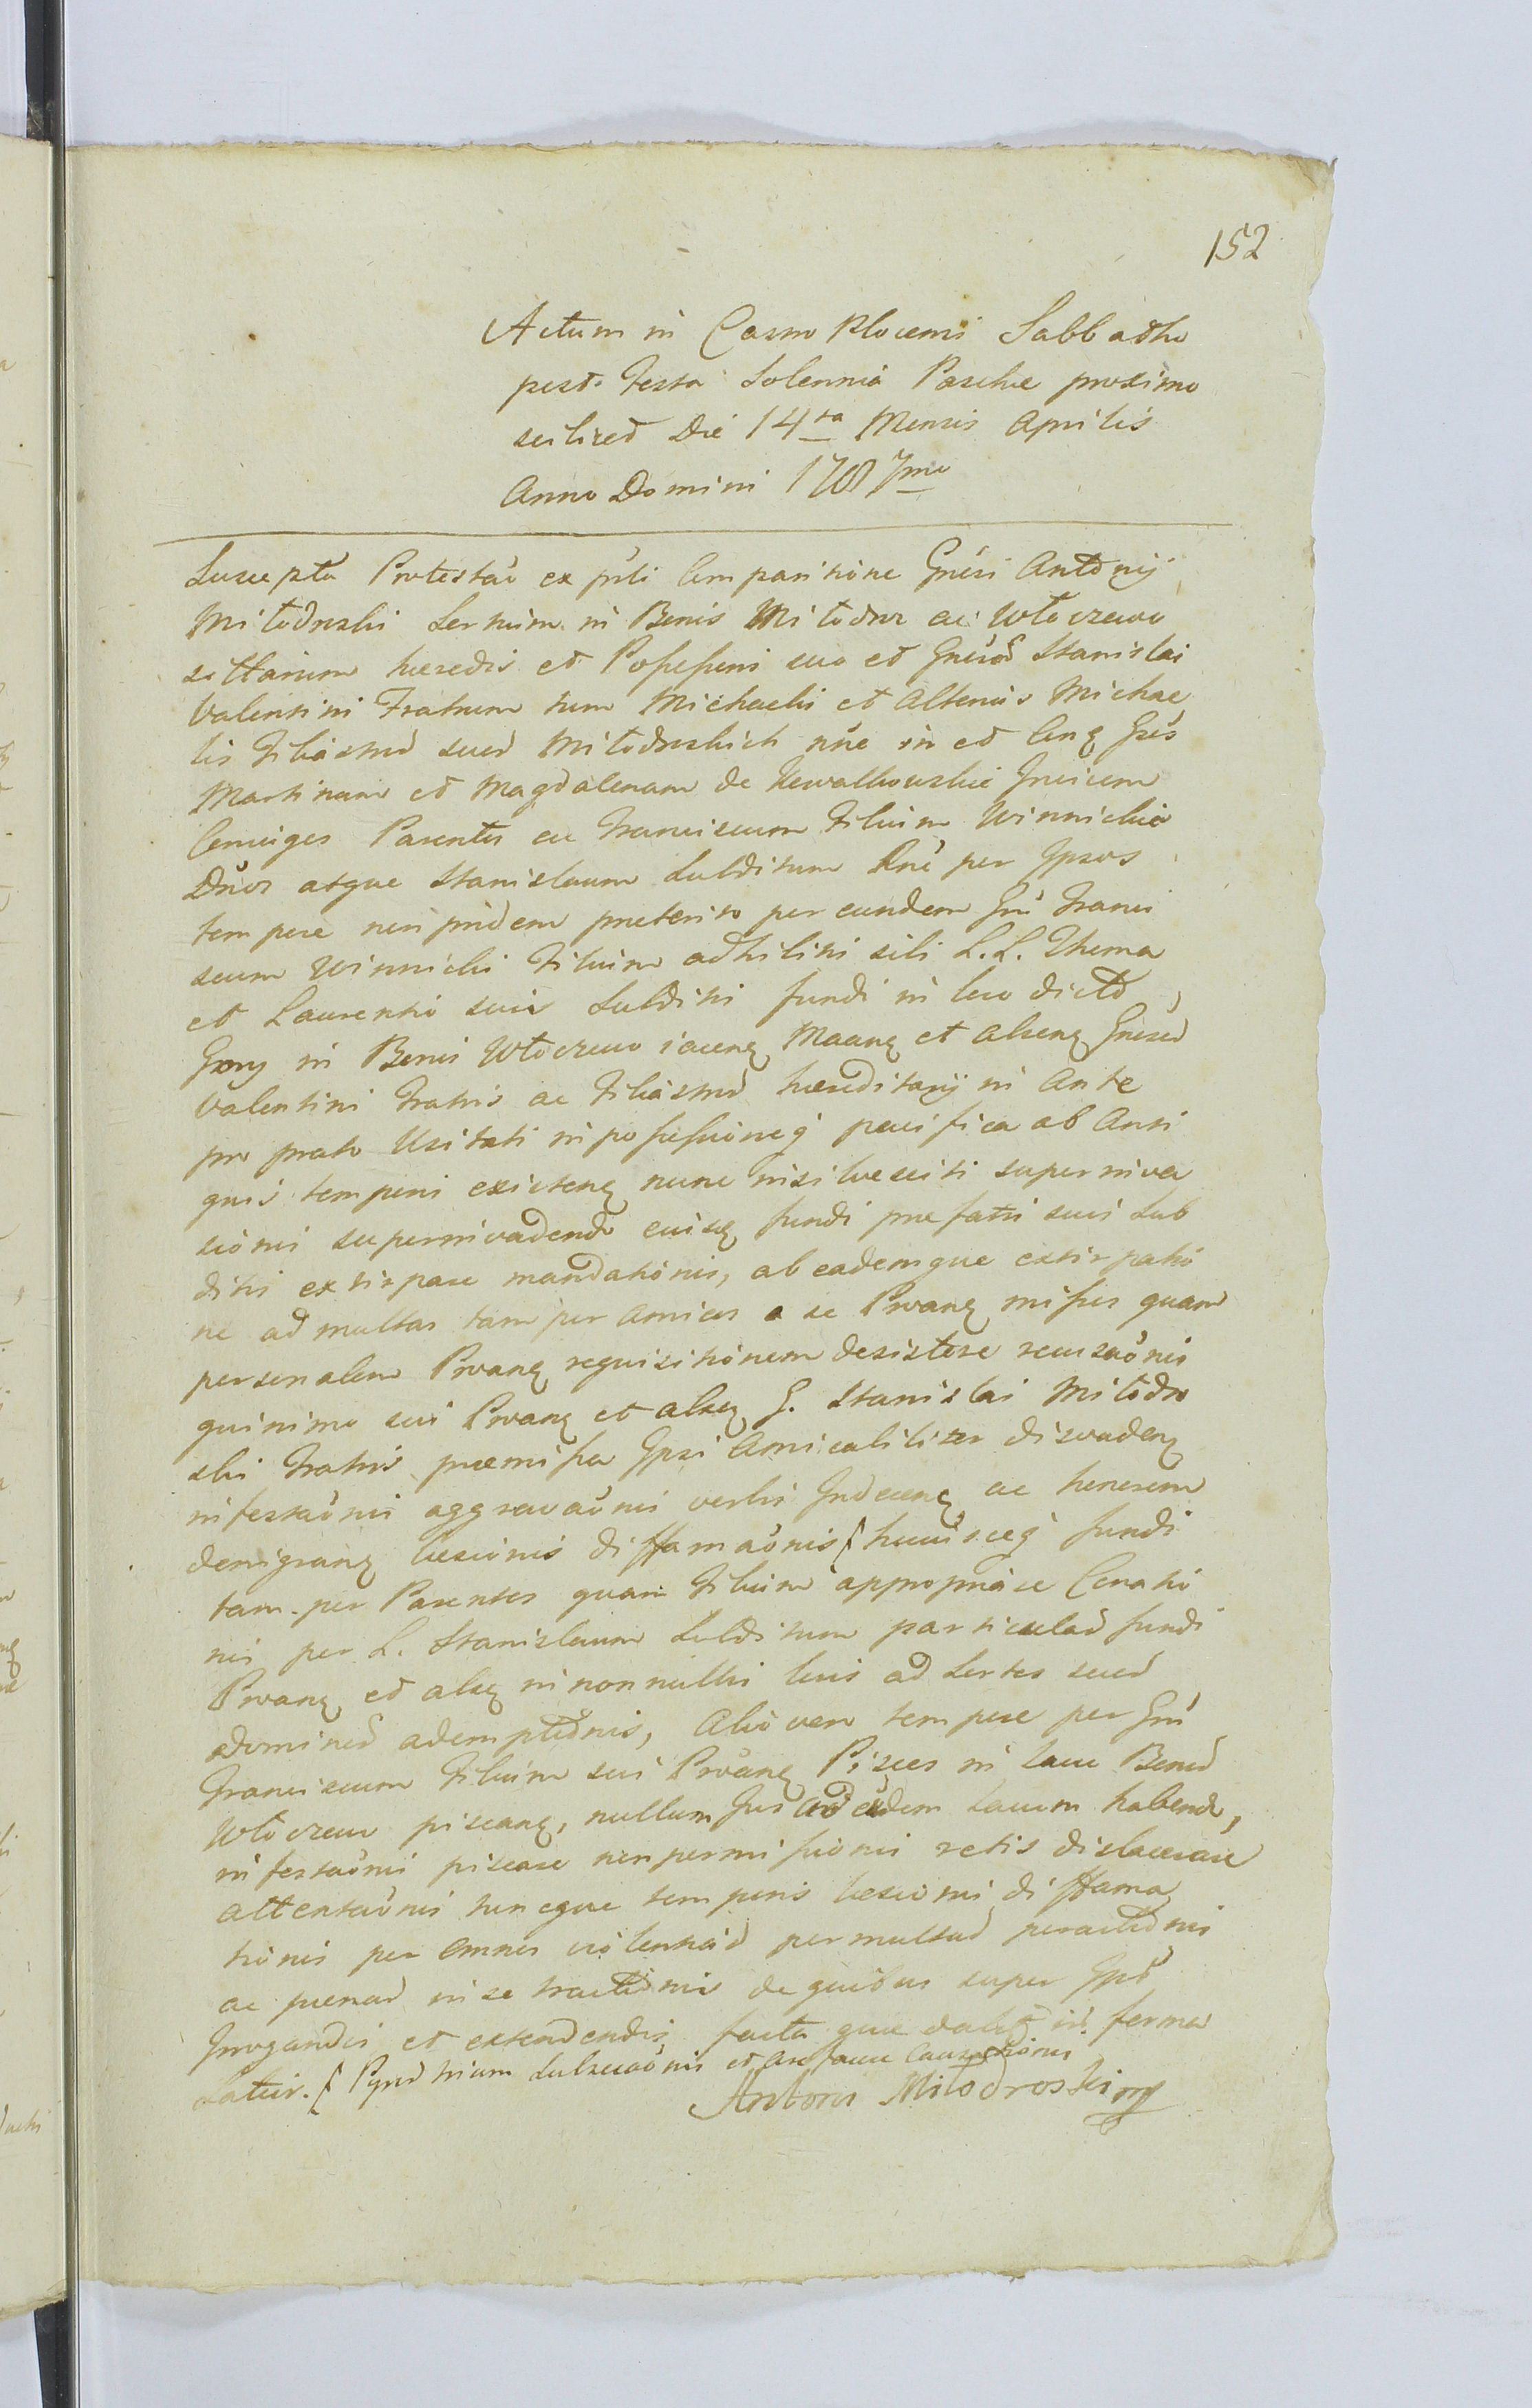 152
Actum in Castro Plocensi Sabbatho
post Festa Solennia Paschae proximo
scilicet Die 14ta Mensis Aprilis
Anno Domini 1787mo
Suscepta Protestao ex psli Comparitione Gnesi Antonij
Miłodroski Sortium in Bonis Miłodroz ac Włoczewo
sittarum haeredis et Possessoris suo et Gnesor Stanislai
Valentini Fratrum tum Michaelis et alterius Michae
lis Filiastror suor Miłodroskich nne in et Conq Gsos
Martinum et Magdalenam de Kowalkowskie Invicem
Coniuges Parentes ac Franciscum Filium Winnickie
Dnos atque Stanislaum Subditum Rne per Ipsos
tempore non pridem praeterito per eundem Gn Franci
scum Winnicki Filium adhibiti sibi L. L. Thoma
et Laurentio suis Subditis fundi in loco dicto
Gory in Bonis Włoczewo iacenq Maanq et aliorq Gnesor
Valentini Fratris ac Filiastror haereditarij in Ante
pro prato Usitati in possessioneq pacifica ab Anti
quis temporis existenq nunc insilvesciti superinva
sionis superinvadendo eiusq fundi praefatis suis Sub
ditis extirpare mandationis, ab eademque extirpatio
ne ad multas tam per Amicos a se Proanq missos quam
personalem Proanq requisitionem desistere recusaonis
quinimo sui Proanq et aliorq G. Stanislai Miłodro
ski Fratris praemissa Ipsi Amicabiliter disvadenq
infestaonis aggravaonis verbis Indecenq ac honorem
denigranq laesionis diffamaonis huiusceq fundi
tam per Parentes quam Filium appropriare Conatio
nis per L. Stanislaum Subditum particular fundi
Proanq et aliorq in nonnullis locis ad Sortes suor
Dominor ademptionis, Alio vero tempore per Gn
Franciscum Filium sui Proanq Pisces in lacu Bonor
Włoczewo piscanq, nullum Jus ad eundem Lacum habendo,
infestaonis piscare non permissionis retis dislacerare
attentaonis tuncque temporis laesionis diffama
tionis per omnes violentiar permultar peractionis
ac poenar in se tractionis de quibus super Ipsos
Irrogandis et extendendis facta quae dabit in forma
Latior. Pynd trium Subsecuaonis et
Antoni Miłodroski mp